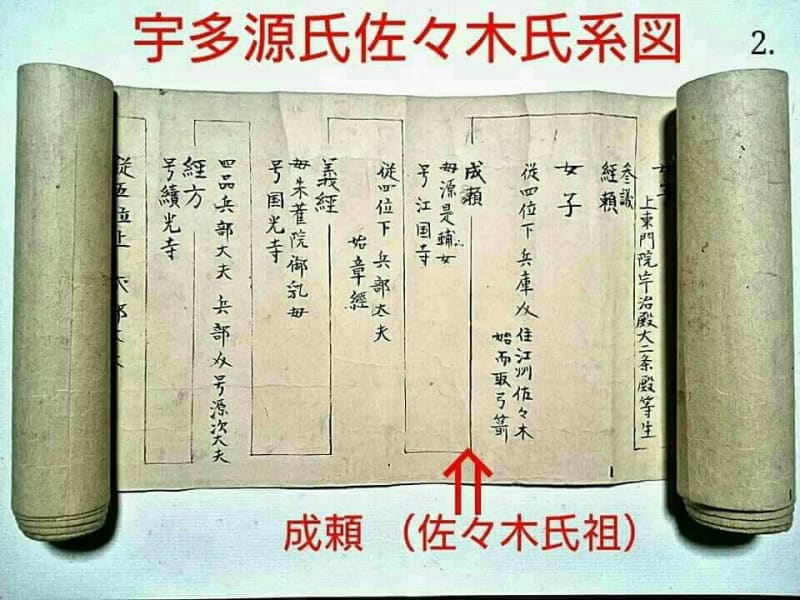 宇多源氏佐々木氏系図
2.
上東門院宇治殿大二条殿等生
参議
経頼
女子
従四位下 兵庫
住江州佐々木
始而取弓箭
成頼
母源是輔女
号江国寺
従四位下 兵部大夫
始章經
義經
母朱雀院御乳母
号国光寺
四品兵部大夫 兵部 号源次大夫
經方
号續光寺
成頼 （佐々木氏祖）